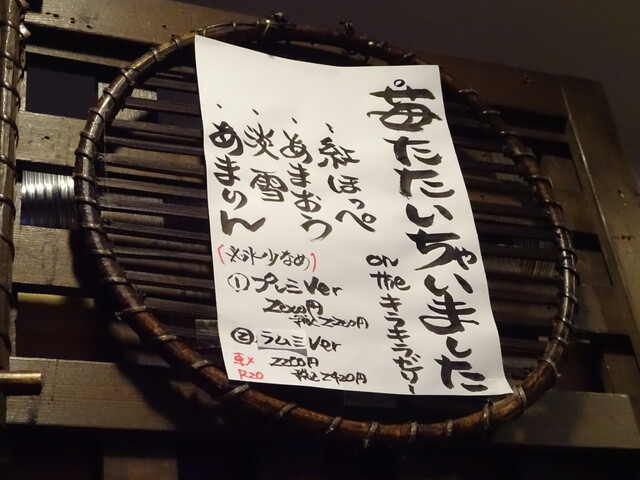 苺たたいちゃいました
on the キラキラゼリー
、紅ほっぺ
、あまおう
、淡雪
、あまりん
(※氷少なめ)
① プレミVer
2000円
税込2200円
② ラムミVer
2200円
税込2420円
R20